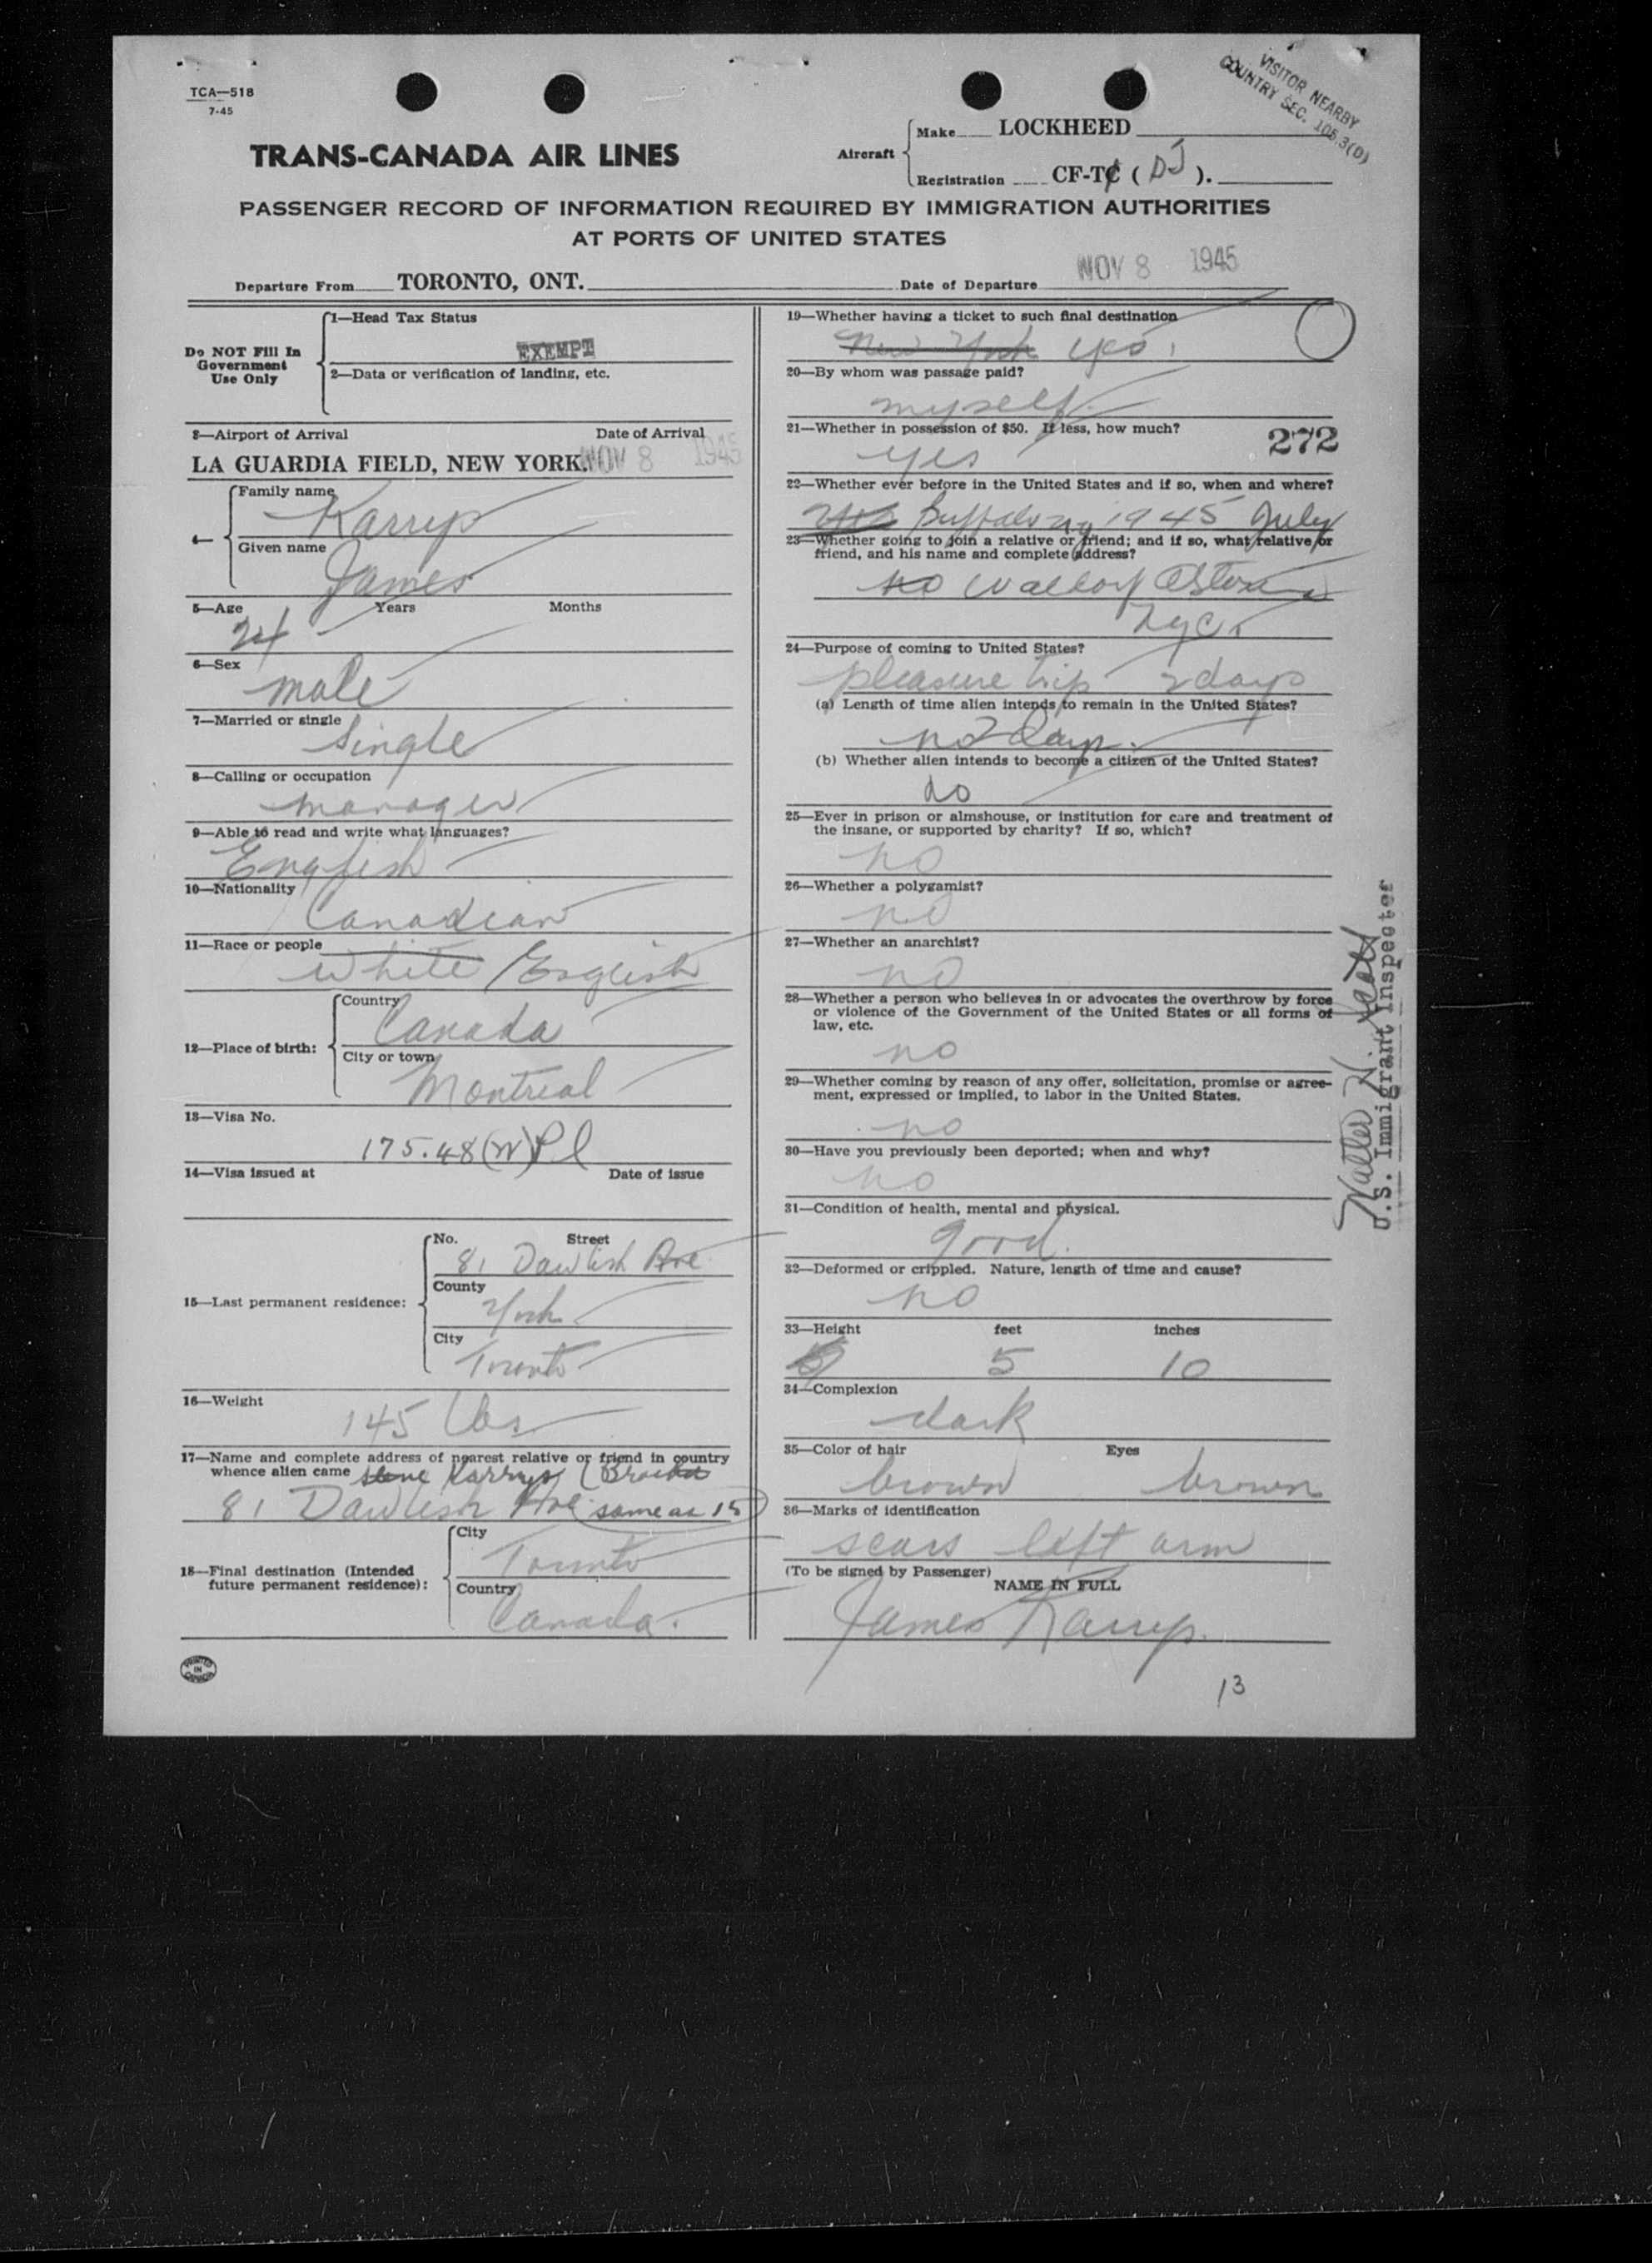 TCA—518
7-45
VISITOR NEARBY
COUNTRY SEC. 105.3(D)
TRANS-CANADA AIR LINES
Aircraft
Make LOCKHEED
Registration CF-TC (DJ).
PASSENGER RECORD OF INFORMATION REQUIRED BY IMMIGRATION AUTHORITIES
AT PORTS OF UNITED STATES
Departure From TORONTO, ONT. Date of Departure NOV 8 1945
Do NOT Fill In
Government
Use Only
1—Head Tax Status
EXEMPT
2—Data or verification of landing, etc.
3—Airport of Arrival Date of Arrival
LA GUARDIA FIELD, NEW YORK. NOV 8 1945
4—
Family name
Karrys
Given name
James
5—Age Years Months
24
6—Sex
male
7—Married or single
Single
8—Calling or occupation
manager
9—Able to read and write what languages?
English
10—Nationality
Canadian
11—Race or people
white / English
12—Place of birth:
Country
Canada
City or town
Montreal
13—Visa No.
175.48(W)Pl
14—Visa issued at Date of issue
15—Last permanent residence:
No. Street
81 Dawlish Ave
County
York
City
Toronto
16—Weight
145 lbs
17—Name and complete address of nearest relative or friend in country
whence alien came Karrys
81 Dawlish Ave same as 15
18—Final destination (Intended
future permanent residence):
City
Toronto
Country
Canada.
PRINTED
IN
CANADA
19—Whether having a ticket to such final destination
New York yes
20—By whom was passage paid?
myself.
21—Whether in possession of $50. If less, how much?
yes 272
22—Whether ever before in the United States and if so, when and where?
yes Buffalo NY 1945 July
23—Whether going to join a relative or friend; and if so, what relative or
friend, and his name and complete address?
no Waldorf Astoria
NYC
24—Purpose of coming to United States?
pleasure trip 2 days
(a) Length of time alien intends to remain in the United States?
no 2 days.
(b) Whether alien intends to become a citizen of the United States?
no
25—Ever in prison or almshouse, or institution for care and treatment of
the insane, or supported by charity? If so, which?
no
26—Whether a polygamist?
no
27—Whether an anarchist?
no
28—Whether a person who believes in or advocates the overthrow by force
or violence of the Government of the United States or all forms of
law, etc.
no
29—Whether coming by reason of any offer, solicitation, promise or agree-
ment, expressed or implied, to labor in the United States.
no
30—Have you previously been deported; when and why?
no
31—Condition of health, mental and physical.
good.
32—Deformed or crippled. Nature, length of time and cause?
no
33—Height feet inches
5 10
34—Complexion
dark
35—Color of hair Eyes
brown brown
36—Marks of identification
scars left arm
(To be signed by Passenger)
NAME IN FULL
James Karrys.
13
Walter N. Scott
U.S. Immigrant Inspector